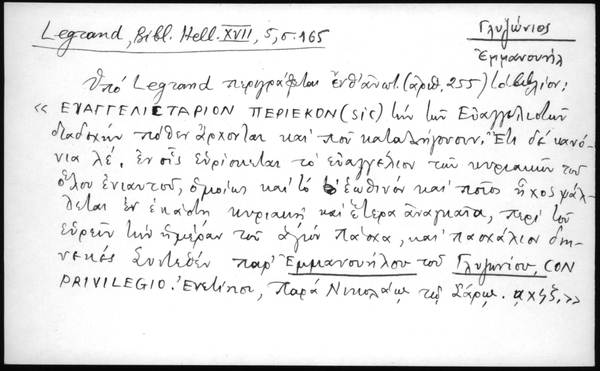 Legrand, Bibl. Hell. XVII, 5, σ. 165
Γλυζώνιος
Ἐμμανουήλ
Ὑπό Legrand περιγράφεται ἐνθ' ἀνωτ. (ἀριθ. 255) τό βιβλίον:
«ΕΥΑΓΓΕΛΙΣΤΑΡΙΟΝ ΠΕΡΙΕΚΟΝ (sic) τήν τῶν Εὐαγγελιστῶν
διαδοχήν πόθεν ἄρχονται καί ποῦ καταλήγουσιν. Ἔτι δέ κανό-
νια λέ. ἐν οἷς εὑρίσκεται τό εὐαγγέλιον τῶν κυριακῶν τοῦ
ὅλου ἐνιαυτοῦ, ὁμοίως καί τό ἑωθινόν καί ποῖος ἦχος ψάλ-
λεται ἐν ἑκάστῃ κυριακῇ καί ἕτερα ἀναγκαῖα, περί τοῦ
εὑρεῖν τήν ἡμέραν τοῦ ἁγίου πάσχα, καί πασχάλιον διη-
νεκές Συντεθέν παρ' Ἐμμανουήλου τοῦ Γλυζωνίου, CON
PRIVILEGIO. Ἐνετίησι, παρά Νικολάῳ τῷ Σάρῳ. αχϟξ.»